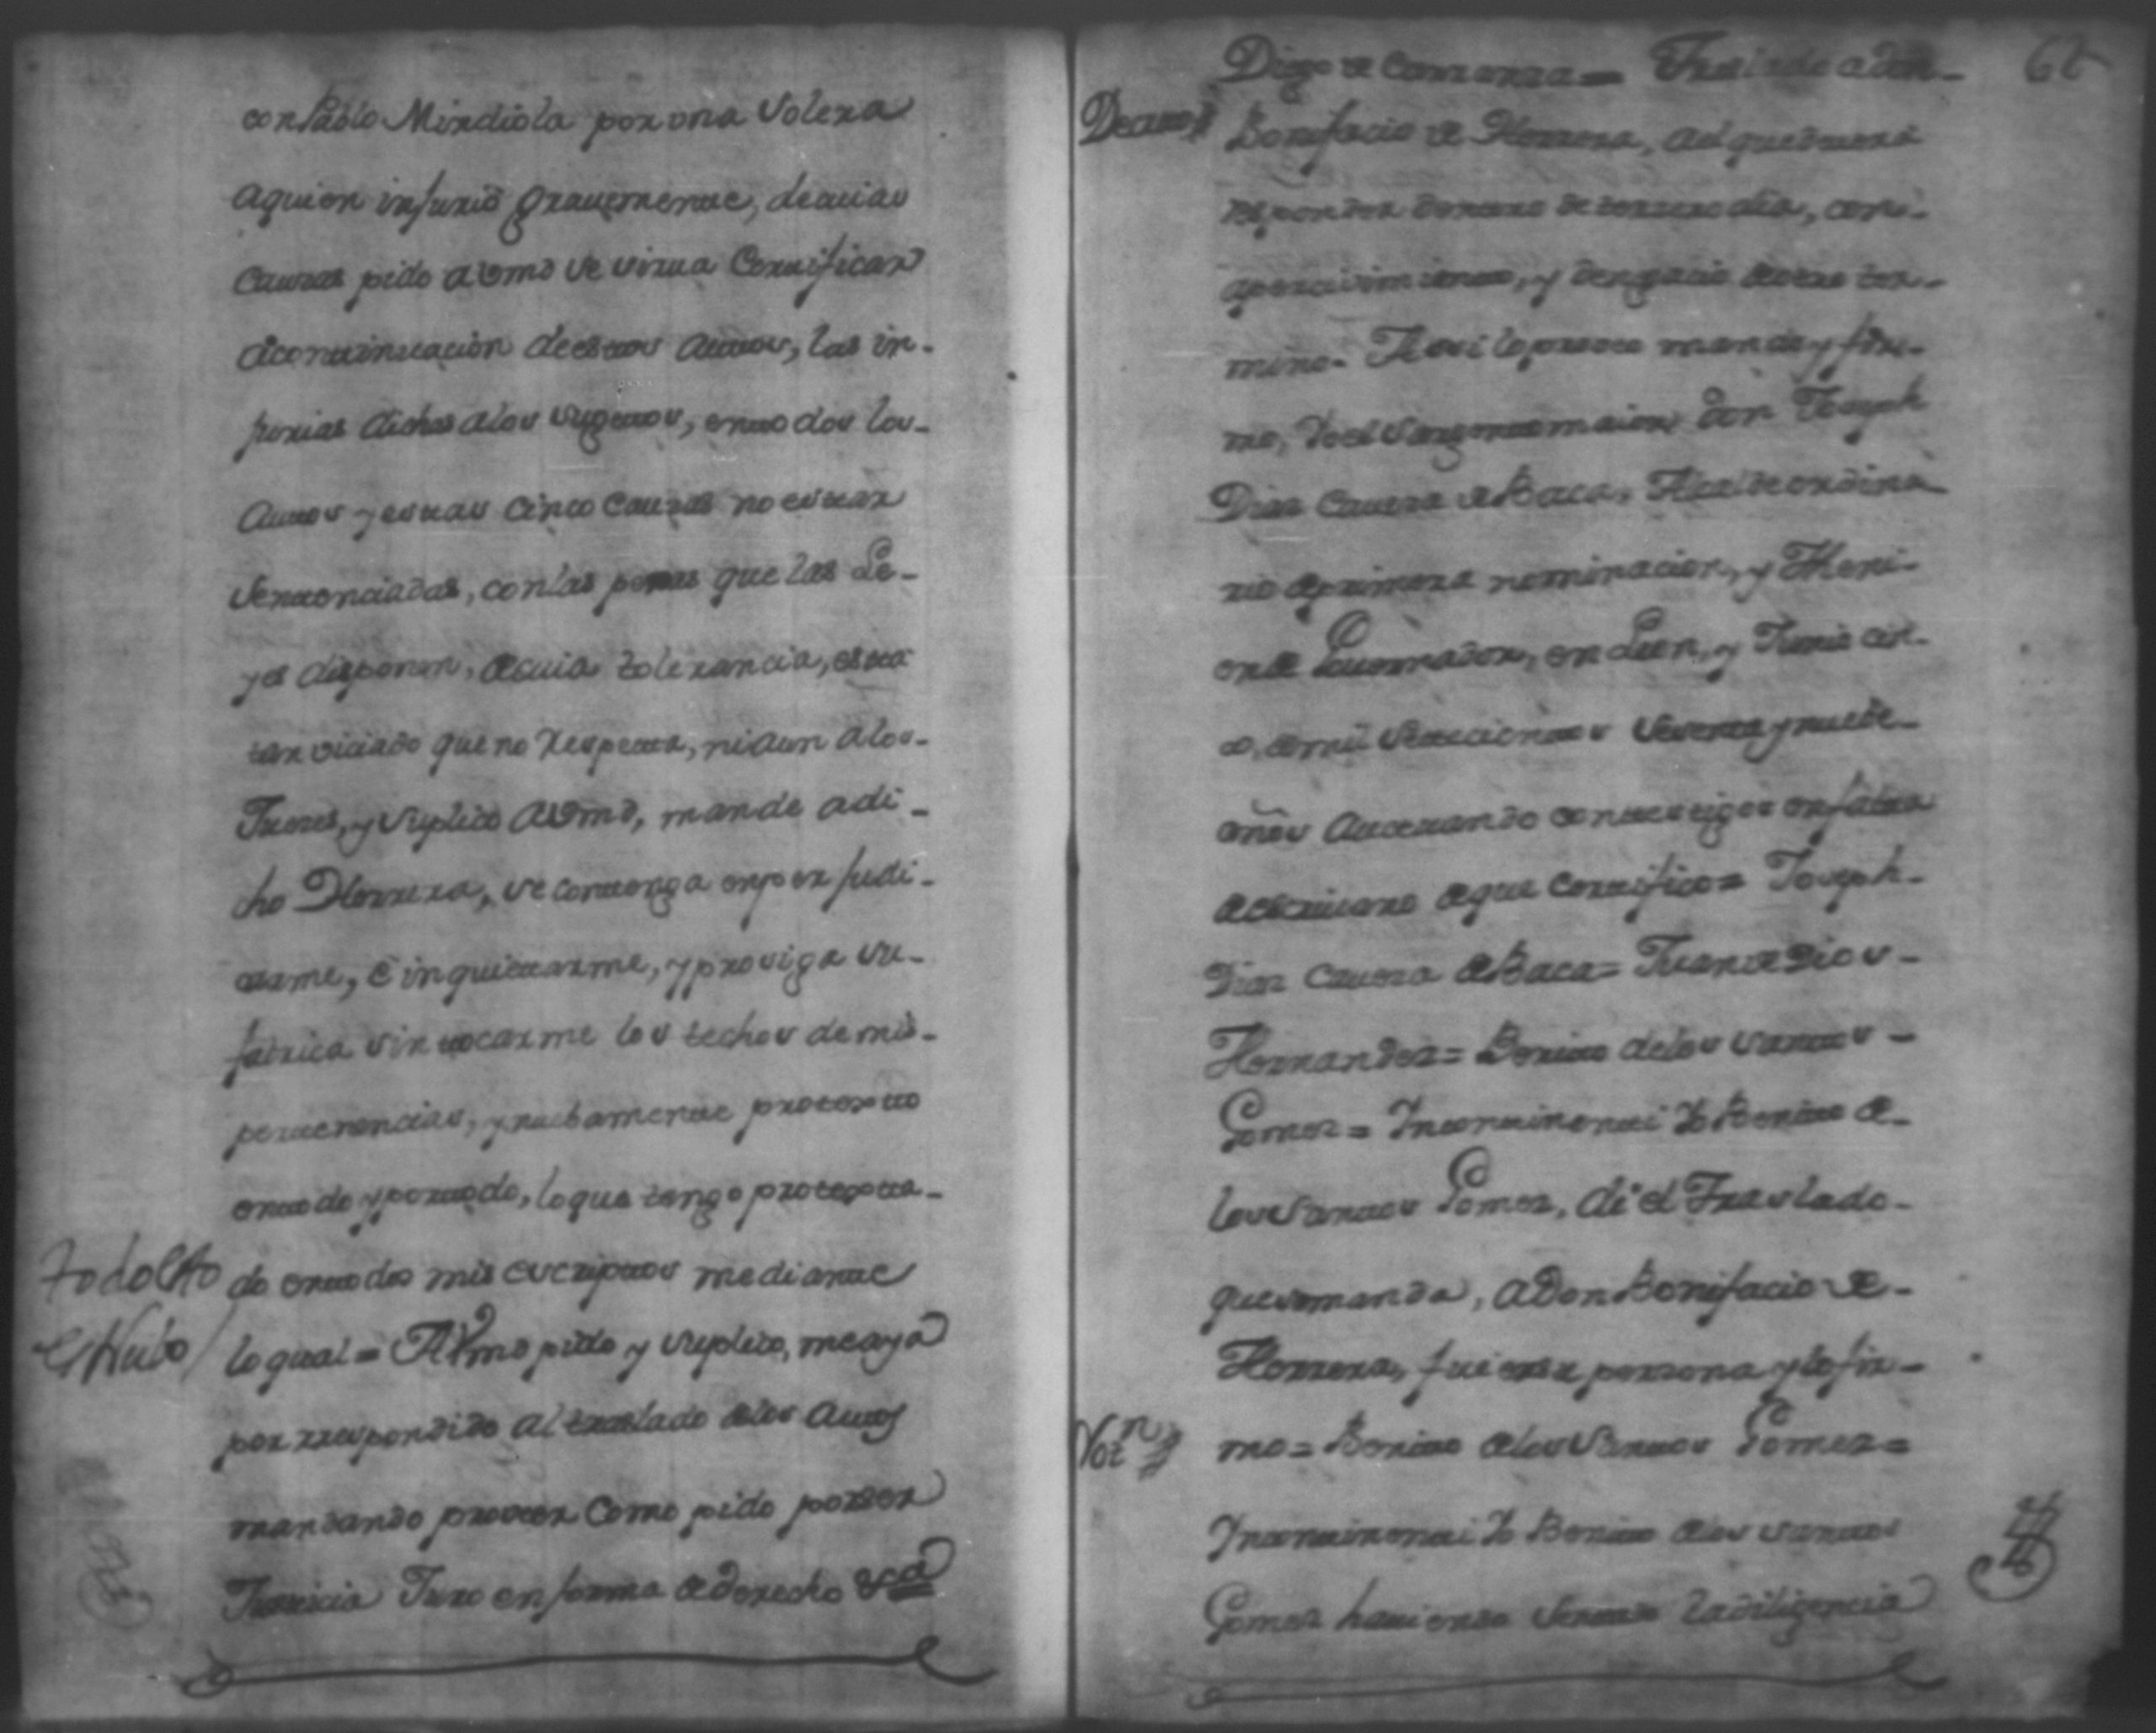 con Pablo Mindiola por una Solera
aquien infurió gravemente, decuias
Causas pido a Vmd se sirva Certificar
acontinuacion deestos autos, las in-
jurias dichas alos sugetos, entodos los
Autos y estas cinco causas no estar
Sentenciadas, conlas penas que las Le-
yes disponen, de cuia tolerancia, está
tan viciado que no Respeta, ni aun alos
Jueses, y Suplico a Vmd, mande a di-
cho Herrera, se contenga en perjudi-
carme, è inquietarme, y prosiga su
fabrica sin tocarme los techos de mis
pertenencias, y nuebamente protexto
entodo y portodo, loque tengo protexta-
do entodos mis escriptos mediante
lo qual = A Vmd pido y suplico, me aya
por rrespondido al traslado delos autos
mandando proveer como pido por ser
Justicia Juro en forma de derecho &ca
Diego de Carranza = Traslado a don
62
Decreto
Bonifacio de Herrera, el que deverá
responder dentro de tercero dia, con
apercivimiento, y denegacion de otro ter-
mino. Assi lo proveo mando y fir-
mo, Yo el Sargento maior don Joseph
Dias Cavesa de Baca, Alcalde ordina
rio de primera nominacion, y Theni-
ente Governador, en Leon, y Junio cin-
co, de mil Setecientos Sesenta y nuebe
años Actuando con testigos en falta
de escrivano de que Certifico = Joseph
Dias Cavesa de Baca = Juan de Dios
Hernandes = Benito delos Santos
Gomes = Incontinenti Yo Benito de
los Santos Gomes, di el Traslado
que se manda, a don Bonifacio de
Herrera, fui en su persona y lo fir-
Not.n
mo = Benito de los Santos Gomes =
Incontinenti Yo Benito de los Santos
Gomes haviendo Sentado la diligencia